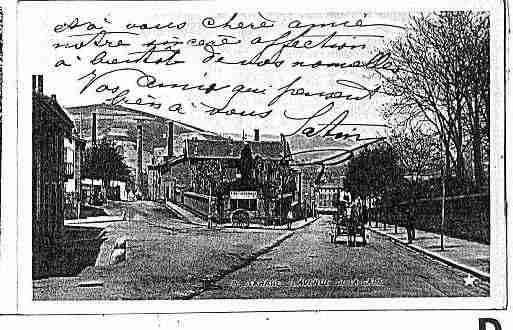 à vous chère amie
notre sincère affection
à bientôt de vos nouvelles
Vos amis qui pensent
bien à vous
TARARE AVENUE DE LA GARE
D